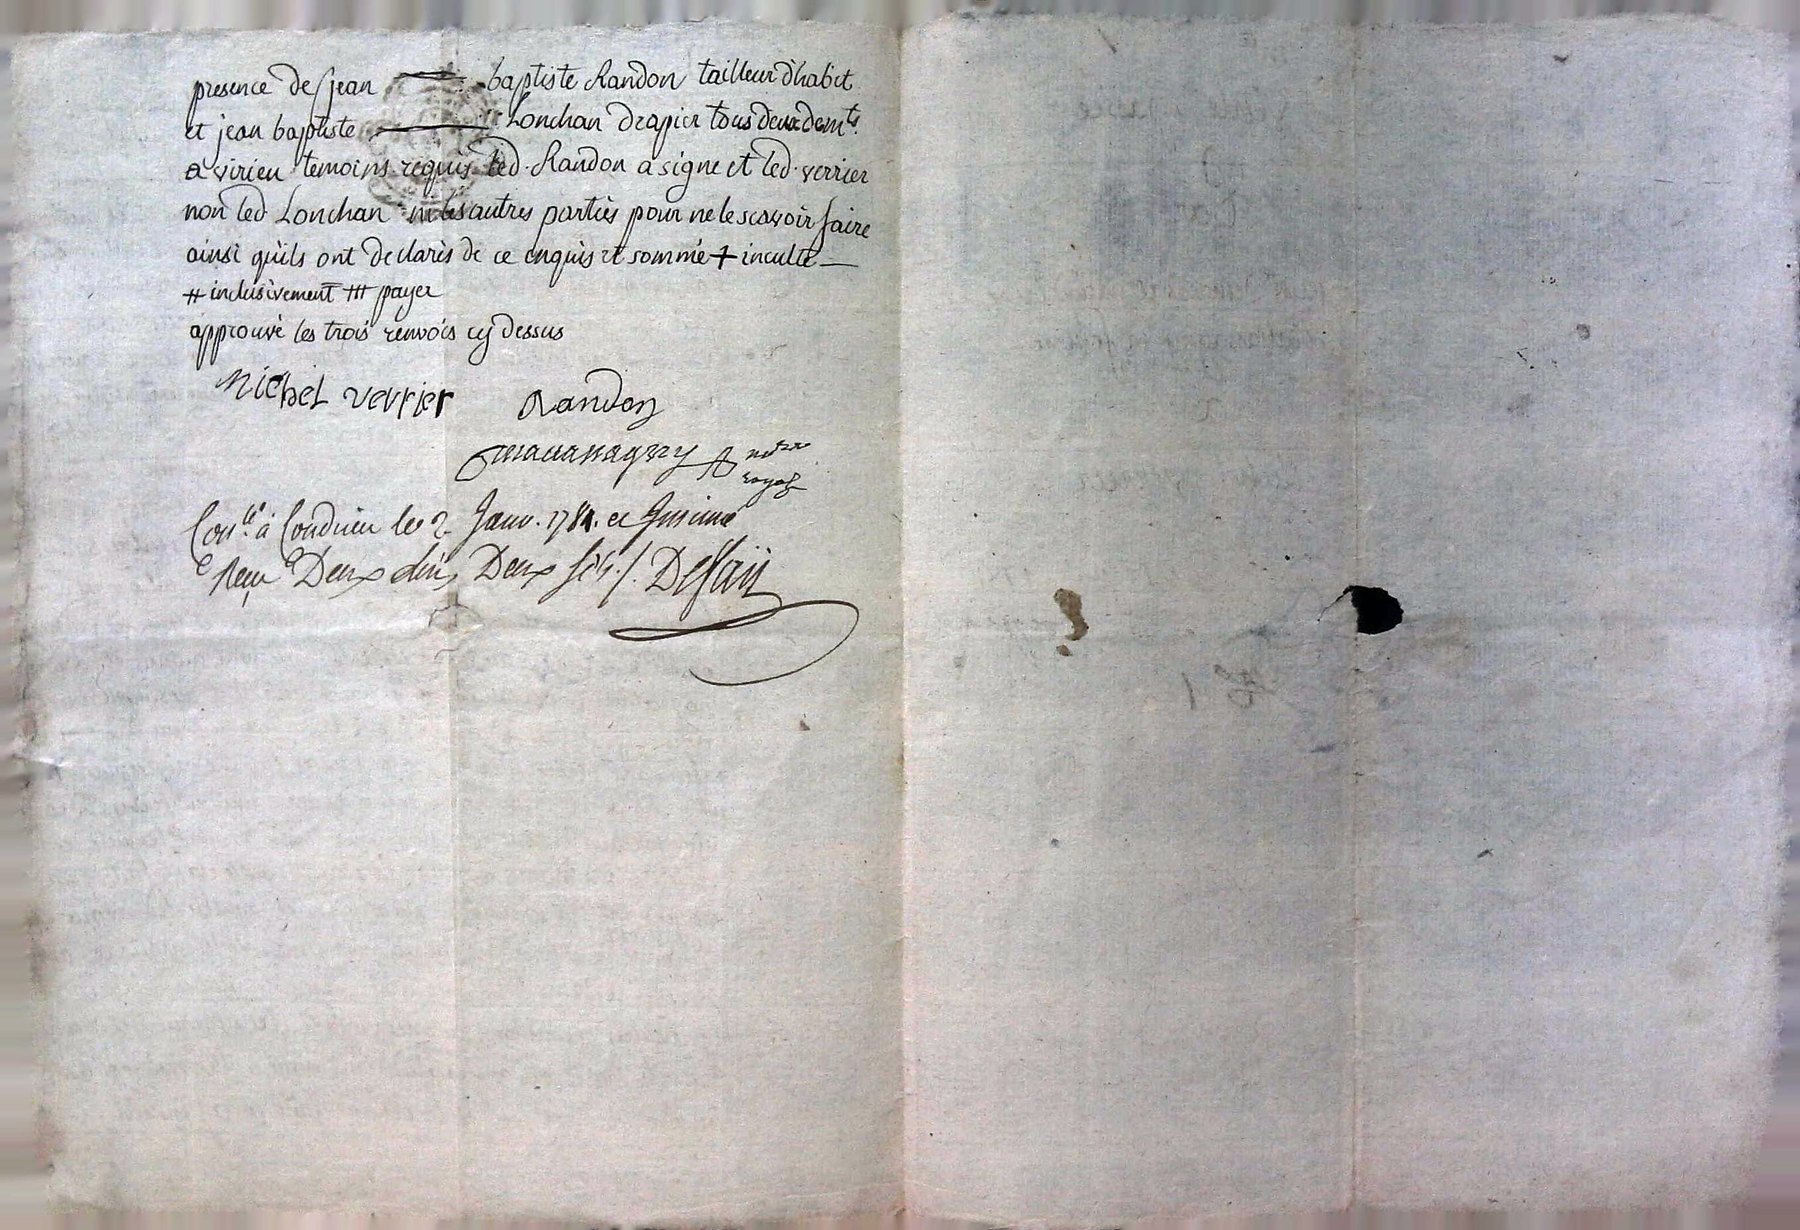 presence de Jean baptiste Randon tailleur d'habit
et jean baptiste Lonchan drapier tous deux demts.
a virieu temoins requis led. Randon a signe et led. verrier
non led Lonchan ni les autres parties pour ne le scavoir faire
ainsi quils ont declarés de ce enquis et sommé + inculte
++ inclusivement +++ payer
approuvé les trois renvois cy dessus
Michel verrier Randon
notre
royal
Conlé. à Condrieu le 2 Janv. 1781. et Insinué
Reçu Deux livs Deux sols